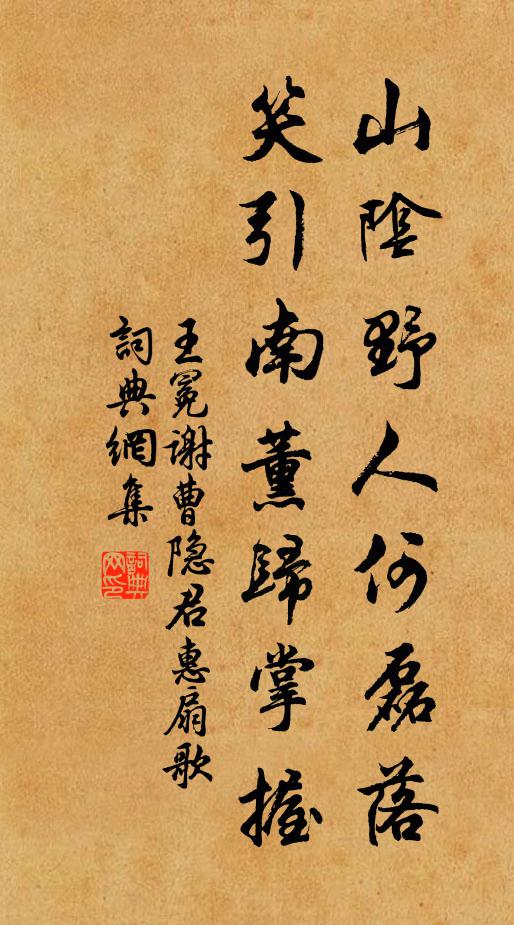 山陰野人何磊落
笑引南薰歸掌握
王冕谢曹隐君惠扇歌
詞典網集
詞典网印